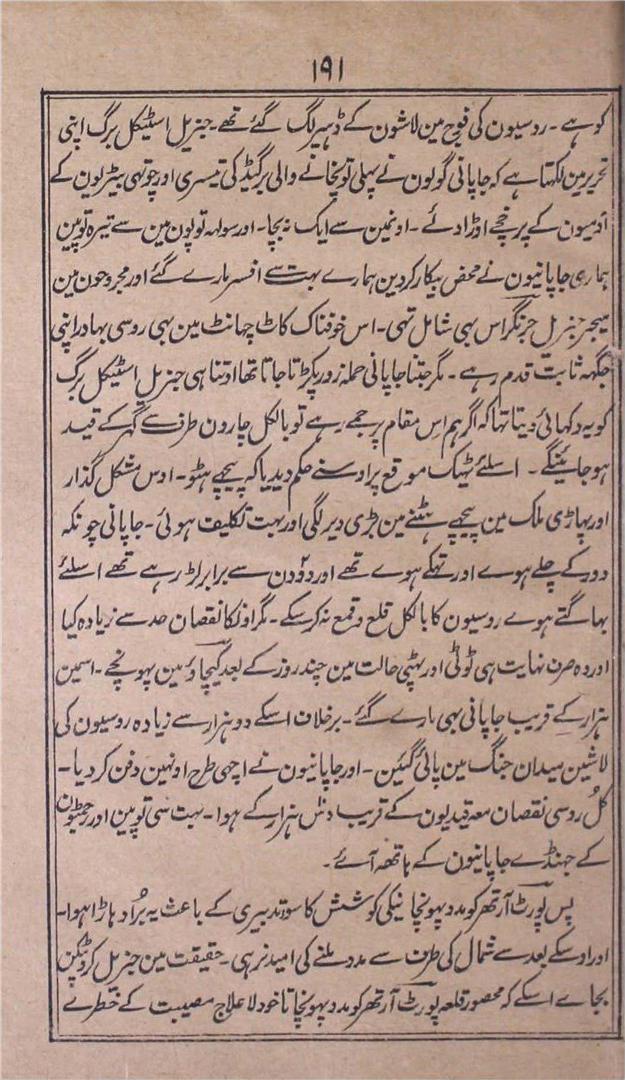 ۱۹۱
کو ہے ۔ روسیون کی فوج مین لاشون کے ڈہیر لگ گئے تھے ۔ جنریل اسٹیکل برگ اپنی
تحریر مین لکہتا ہے کہ جاپانی گولون نے پہلی توپخانے والی برگیڈ کی تیسری اور چوتہی بیٹریون کے
آدمیون کے پرخچے اوڑا دئے ۔ اونمین سے ایک نہ بچا ۔ اور سولہ توپون مین سے تیرہ توپین
ہماری جاپانیون نے محض بیکار کردین ہمارے بہت سے افسر مارے گئے اور مجروحون مین
میجر جنریل جرنگراس بہی شامل تہی ۔ اس خوفناک کاٹ چہانٹ مین بہی روسی بہادر اپنی
جگہہ ثابت قدم رہے ۔ مگر جتنا جاپانی حملہ زور پکڑتا جاتا تھا اوتنا ہی جنریل اسٹیکل برگ
کو یہ دکہائی دیتا تہا کہ اگر ہم اس مقام پر جمے رہے تو بالکل چارون طرف سے گہر کے قید
ہو جائینگے ۔ اسلئے ٹہیک موقع پر اوسنے حکم دیدیا کہ پیچہے ہٹو ۔ اوس مشکل گذار
اور پہاڑی ملک مین پیچہے ہٹنے مین بڑی دیر لگی اور بہت تکلیف ہوئی ۔ جاپانی چونکہ
دور کے چلے ہوے اور تہکے ہوے تھے اور دو دن سے برابر لڑ رہے تھے اسلئے
بہاگتے ہوے روسیون کا بالکل قلع و قمع نہ کرسکے ۔ مگر اونکا نقصان حد سے زیادہ کیا
اور وہ صرف نہایت ہی ٹوٹی اور پہٹی حالت مین چند روز کے بعد کیچاؤ مین پہونچے ۔ اسمین
ہزار کے قریب جاپانی بہی مارے گئے ۔ برخلاف اسکے دو ہزار سے زیادہ روسیون کی
لاشین میدان جنگ مین پائی گئین ۔ اور جاپانیون نے اچہی طرح اونہین دفن کر دیا ۔
کل روسی نقصان معہ قیدیون کے قریب دس ہزار کے ہوا ۔ بہت سی توپین اور رجمٹون
کے جہنڈے جاپانیون کے ہاتھہ آئے ۔
پس پورٹ آرتھر کو مدد پہونچانیکی کوشش کا سوء تدبیری کے باعث یہ بُرا دہاڑا ہوا ۔
اور اوسکے بعد سے شمال کی طرف سے مدد ملنے کی امید نرہی ۔ حقیقت مین جنریل کروپٹکن
بجاے اسکے کہ محصور قلعہ پورٹ آرتھر کو مدد پہونچاتا خود لا علاج مصیبت کے خطرے